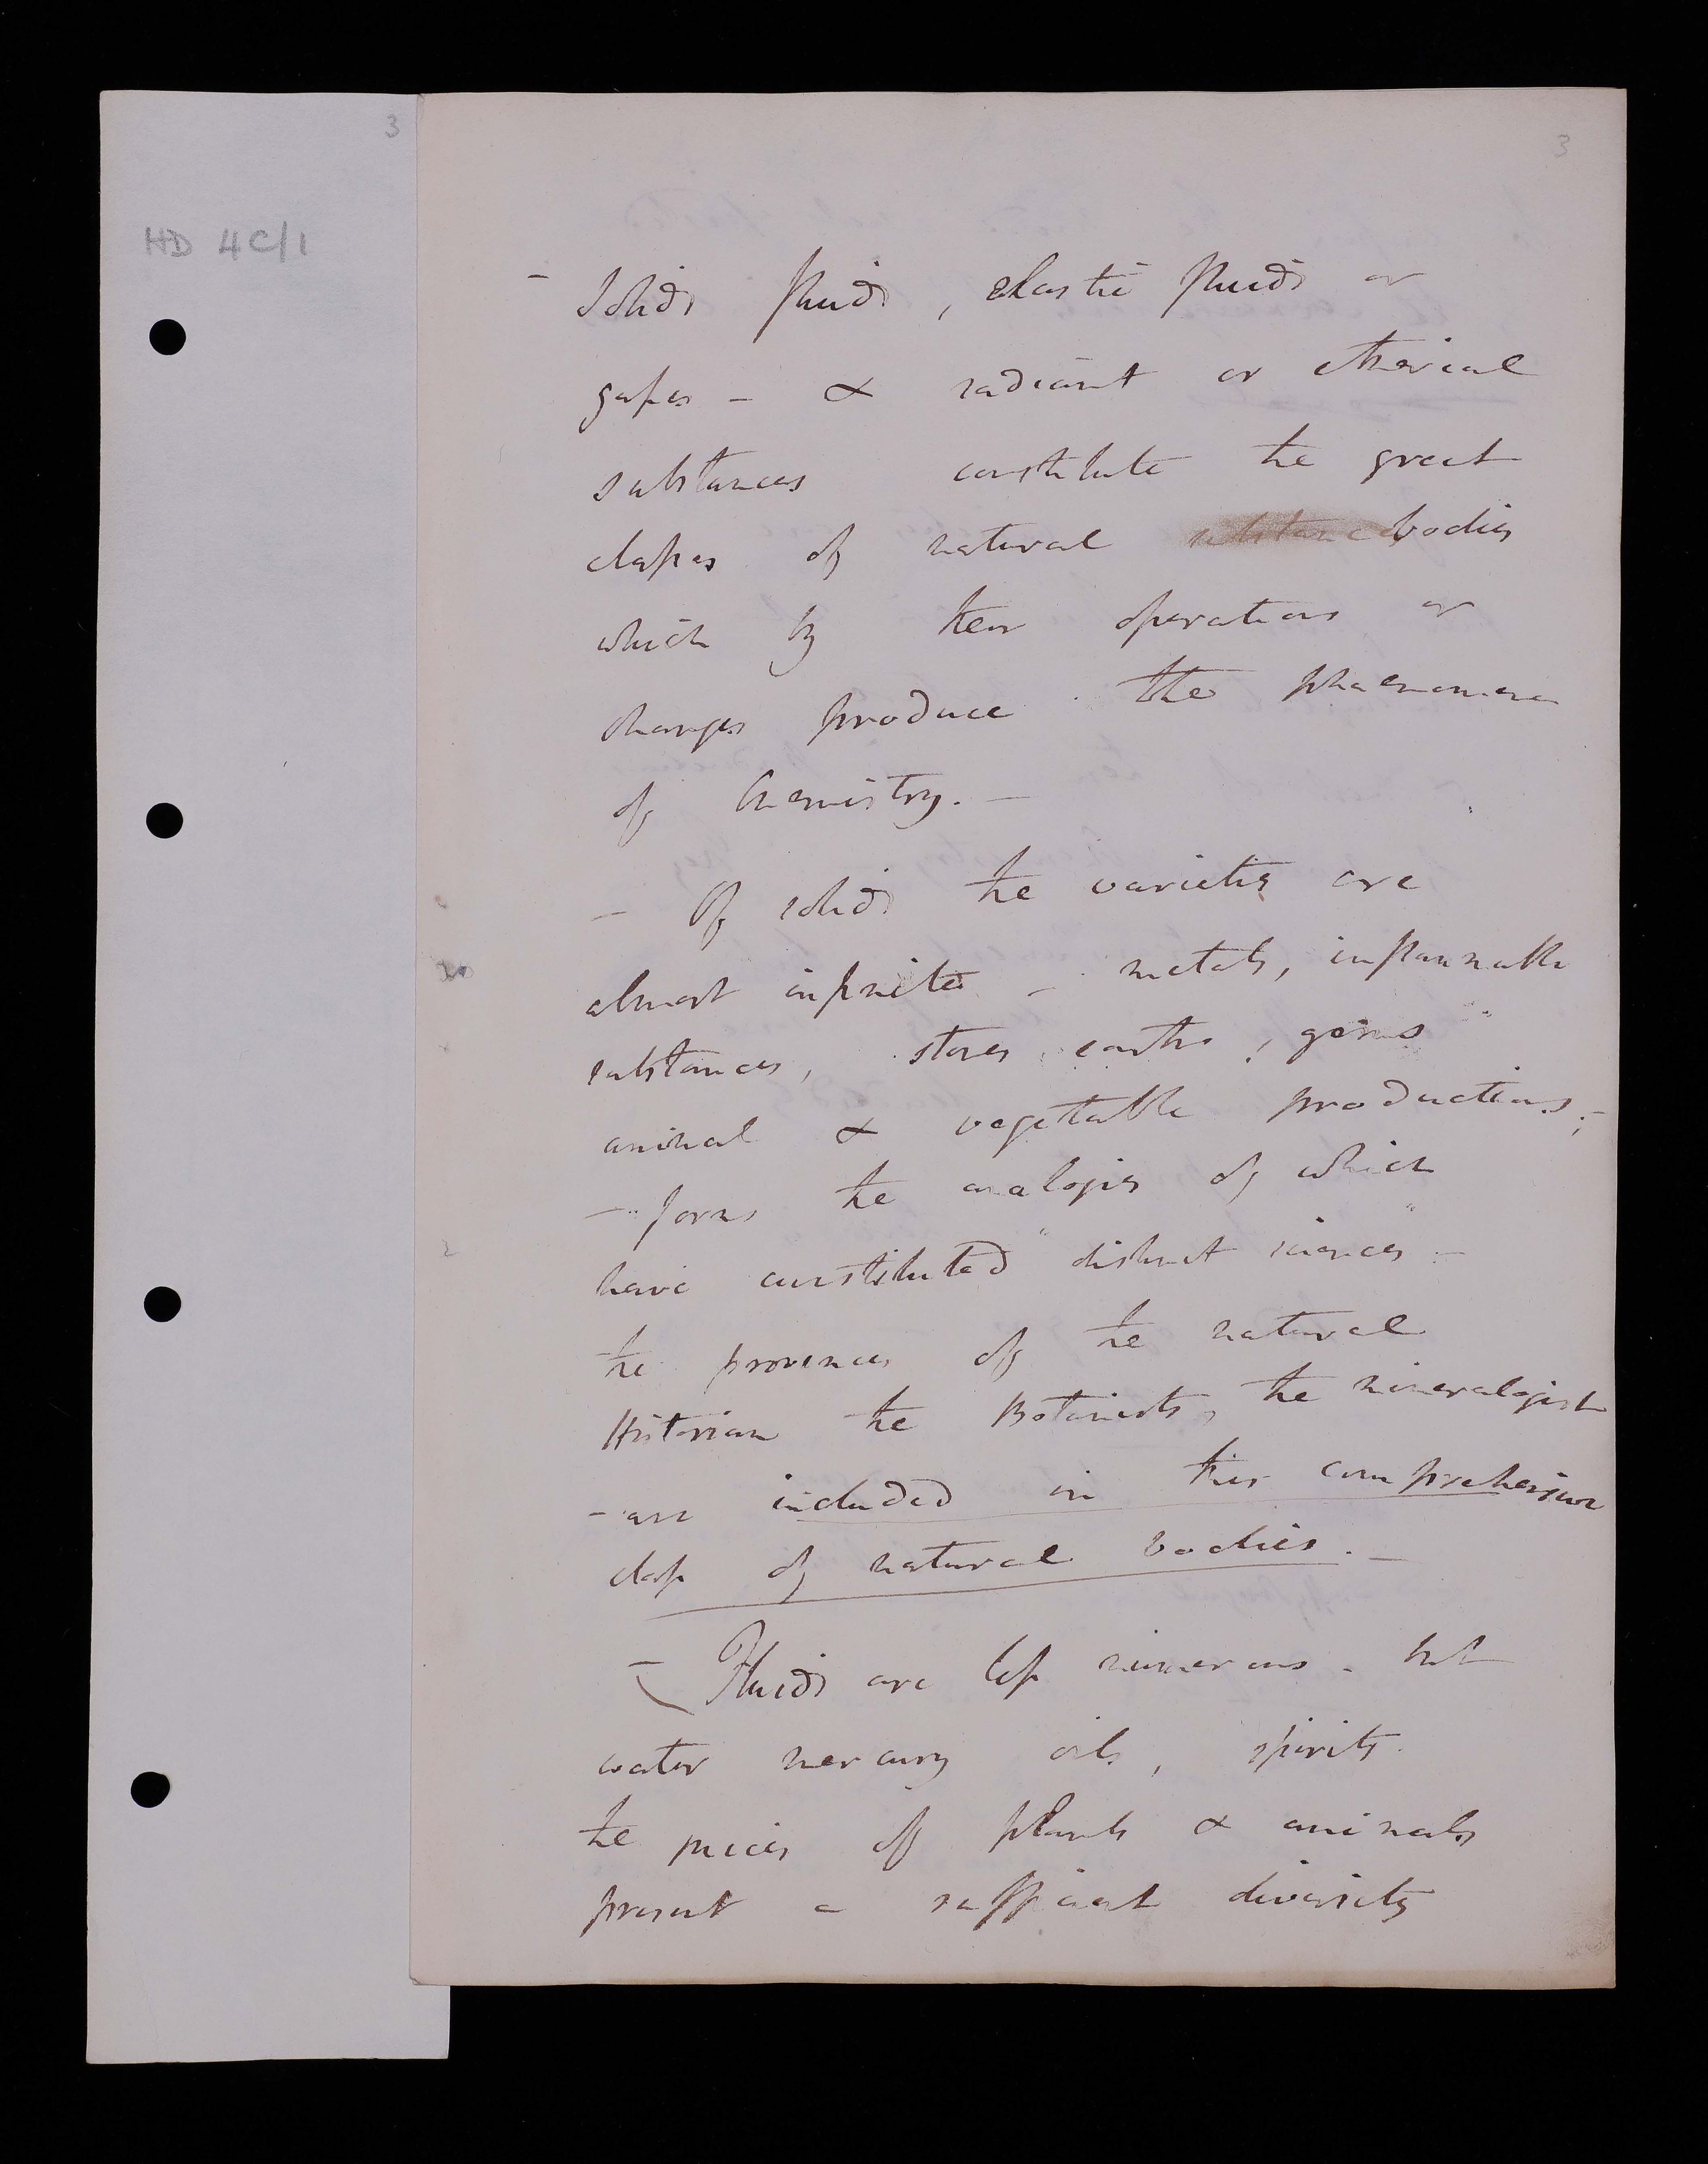 3
3
HD 4C/1
- Solids fluids, elastic fluids or
gases - & radiant or etherial
substances constitute the great
classes of natural substances bodies
which by their operations or
changes produce the phaenomena
of Chemistry. -
- Of solids the varieties are
almost infinite - metals, inflammable
substances, stones, earths, gems
animal & vegetable productions; -
- forms the analogies of which
have constituted distinct sciences -
the provinces of the natural
Historian the Botanists, the mineralogist
- are included in this comprehensive
class of natural bodies. -
- Fluids are less numerous - but
water mercury oils, spirits
the juices of plants & animals
present a sufficient diversity